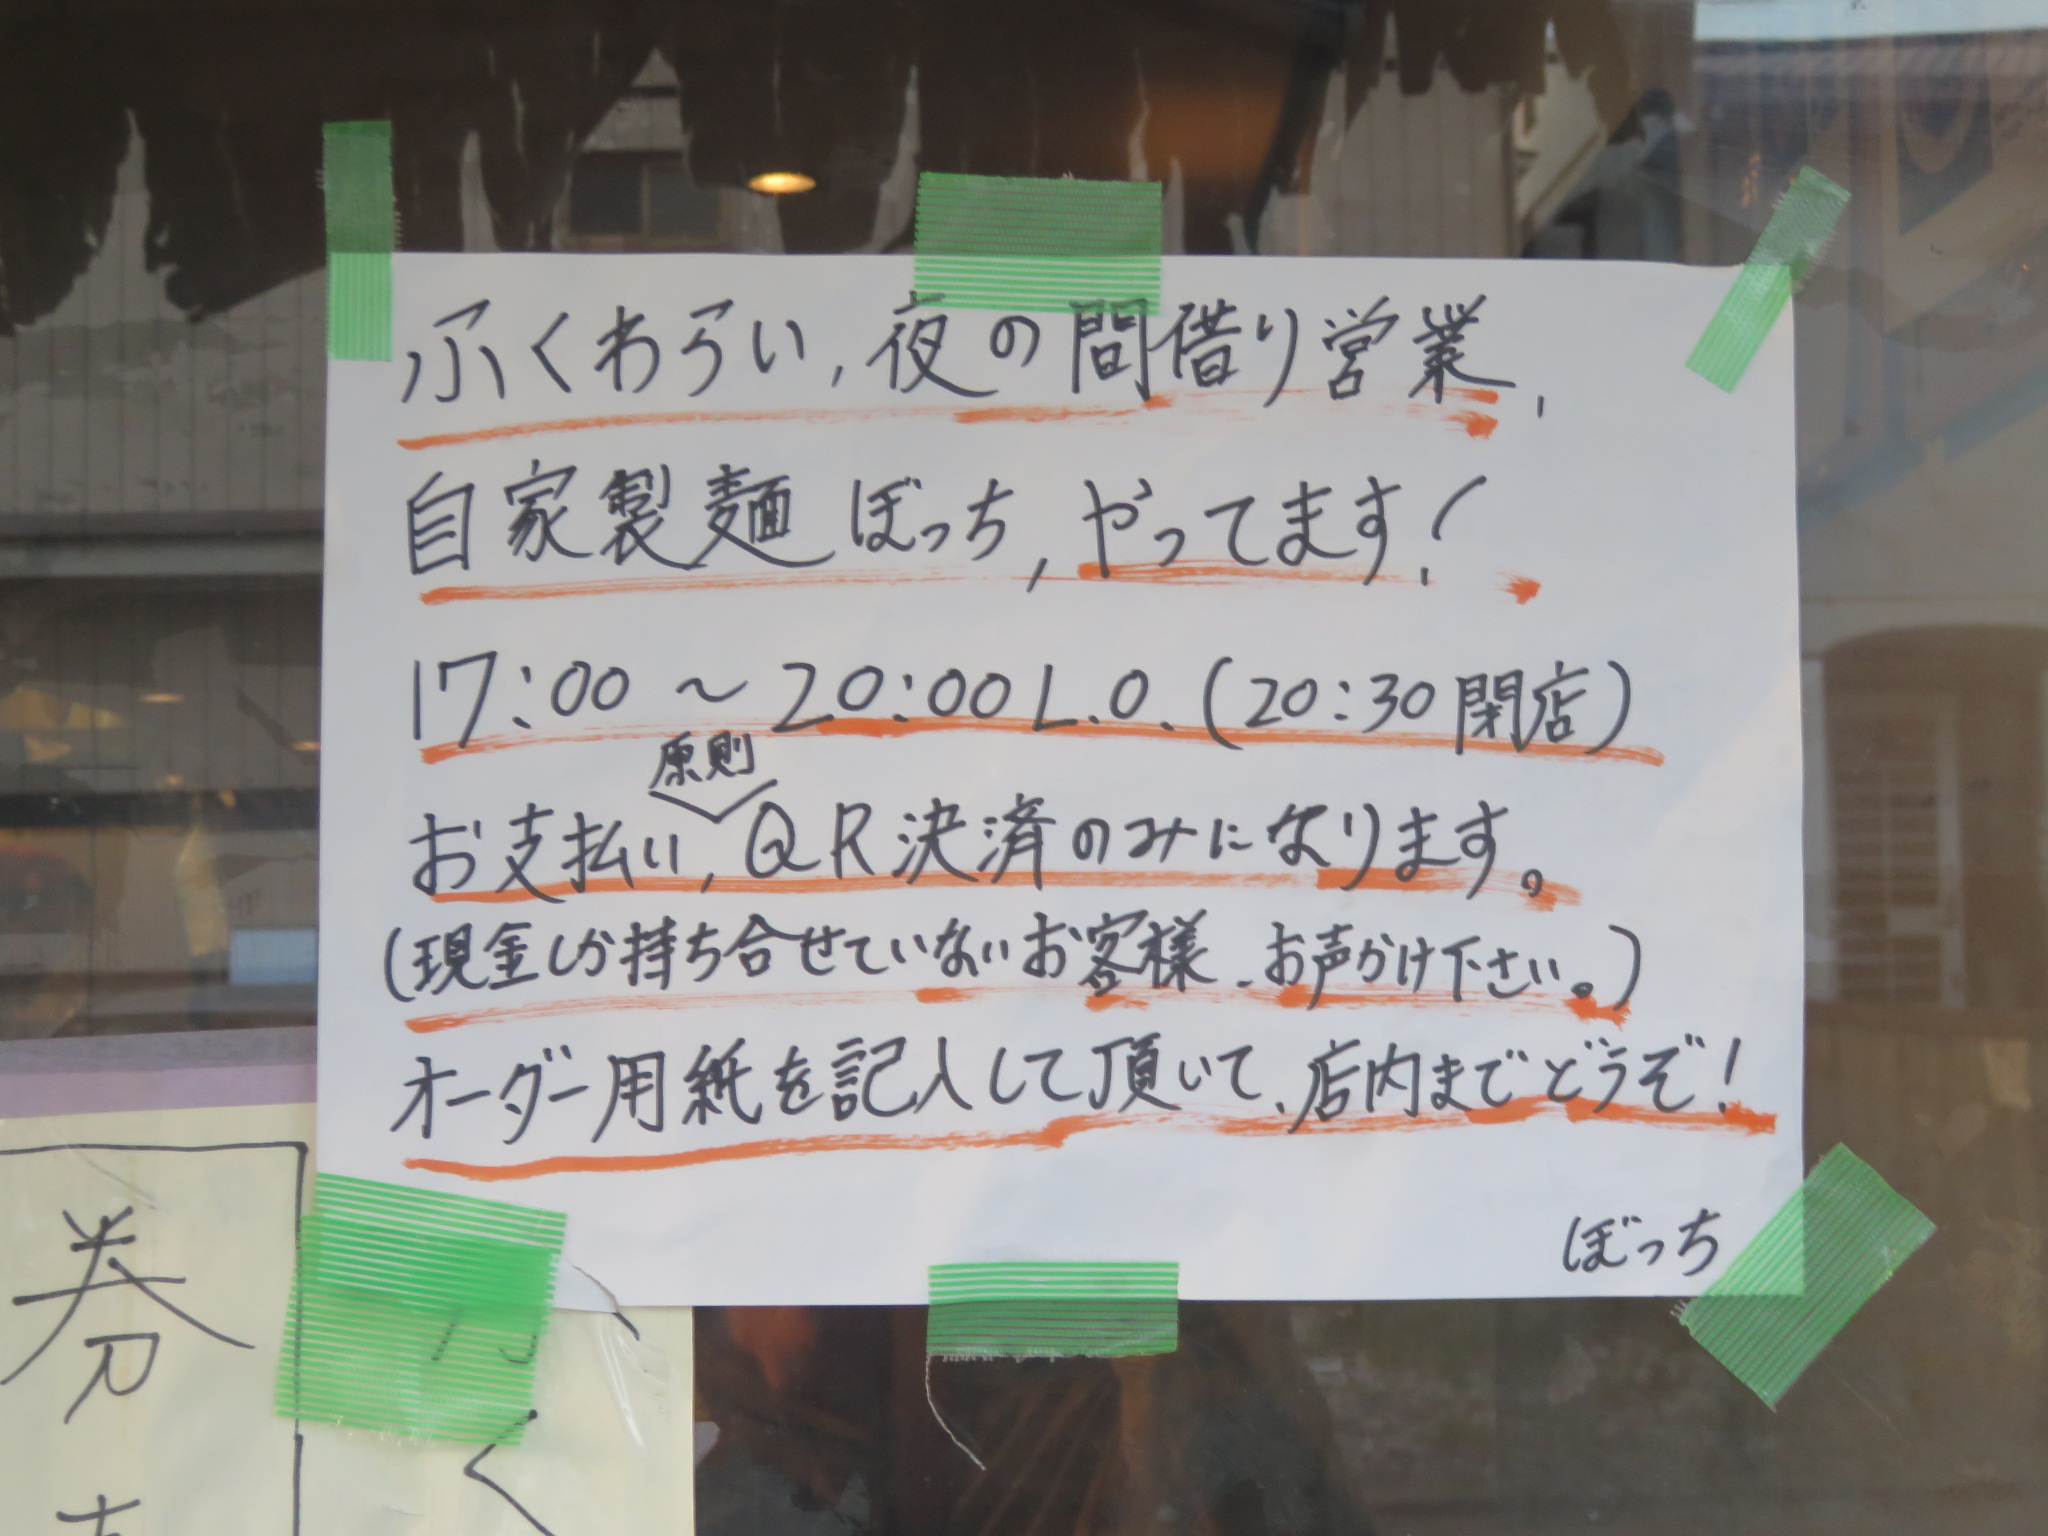 ふくわらい,夜の間借り営業、
自家製麺ぼっち,やってます!
17:00 ~ 20:00 L.O.(20:30 閉店)
原則
お支払い,QR決済のみになります。
(現金しか持ち合せていないお客様、お声かけ下さい。)
オーダー用紙を記入して頂いて、店内までどうぞ!
ぼっち
券
く